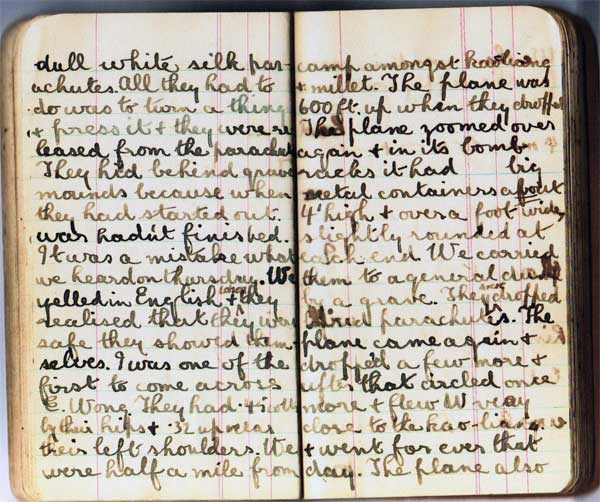 dull white silk par-
achutes. All they had to
do was to turn a thing
& press it & they were re
leased from the parachute
They hid behind grave
mounds because when
they had started out.
was hadn't finished.
It was a mistake what
we heard on thursday. We
yelled in English & they
realised that they were
safe they showed them
selves. I was one of the
first to come across
E. Wong. They had
by their hips & .32
their left shoulders. We
were half a mile from
camp amongst kaoliang
& millet. The plane was
600 ft. up when they dropped
The plane zoomed over
again & in its bomb
racks it had big
metal containers about
4' high & over a foot wide,
slightly rounded at
each end. We carried
them to a general dump
by a grave. They dropped
parachutes. The
plane came again &
dropped a few more &
after that circled once
more & flew W very
close to the kao-liang
& went for ever that
day. The plane also